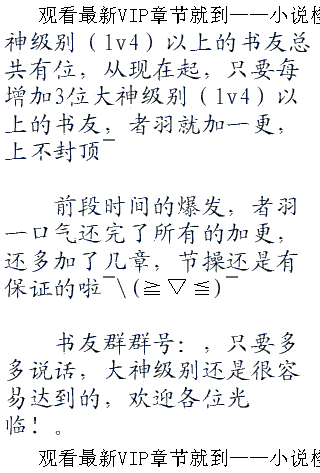 观看最新VIP章节就到——小说检
神级别（lv4）以上的书友总
共有位，从现在起，只要每
增加3位大神级别（lv4）以
上的书友，者羽就加一更，
上不封顶¯
前段时间的爆发，者羽
一口气还完了所有的加更，
还多加了几章，节操还是有
保证的啦¯\(≧▽≦)¯
书友群群号：，只要多
多说话，大神级别还是很容
易达到的，欢迎各位光
临！。
观看最新VIP章节就到——小说检